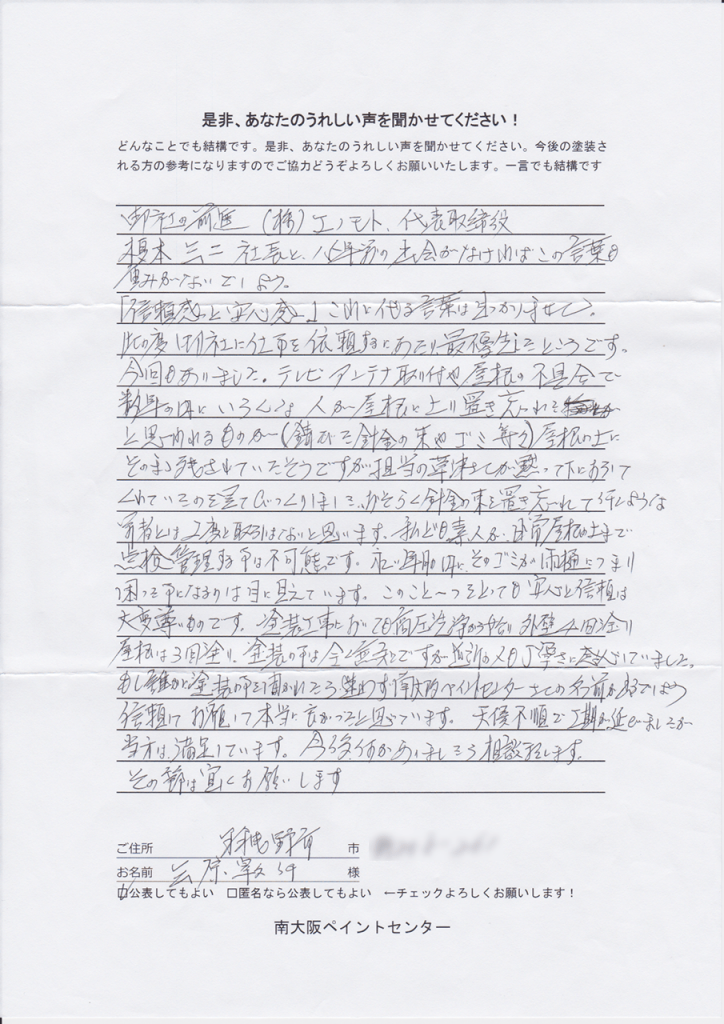 是非、あなたのうれしい声を聞かせてください！
どんなことでも結構です。是非、あなたのうれしい声を聞かせてください。今後の塗装さ
れる方の参考になりますのでご協力どうぞよろしくお願いいたします。一言でも結構です
御社の前進 (株)エノモト、代表取締役
榎本 社長と、八年前の出会がなければこの言葉も
重みがないでしょう。
「信頼感と安心感。」これに代る言葉は見つかりません。
此の度御社に仕事を依頼するにあたり、最優先したところです。
今回もありました。テレビアンテナ取付や屋根の不具合で
数年の内にいろんな人が屋根に上り置き忘れた
と思われるものが(錆びた針金の束やゴミ等々)屋根の上に
そのまま残されていたそうですが担当の草津さんが黙って下におろして
くれていたのを見てびっくりしました。おそらく針金の束を置き忘れて行くような
業者とは2度と取引はないと思います。私ども素人が、日常屋根の上まで
点検、管理する事は不可能です。 年月の内にそのゴミが雨樋につまり
困った事になるのは目に見えています。このこと一つをとっても安心と信頼は
大変尊いものです。塗装工事においても高圧洗浄から始り外壁4回塗り
屋根は3回塗り、塗装の事は全く ですが の丁寧さに していました。
もし誰かに塗装の事を聞かれたら迷わず南大阪ペイントセンターさんの名前が出るでしょう
信頼してお願いして本当に良かったと思っています。天候不順で工期が延びましたが
当方は満足しています。今後何かありましたら相談致します。
その節は宜しくお願いします
ご住所 市
お名前 様
公表してもよい □匿名なら公表してもよい ←チェックよろしくお願いします！
南大阪ペイントセンター